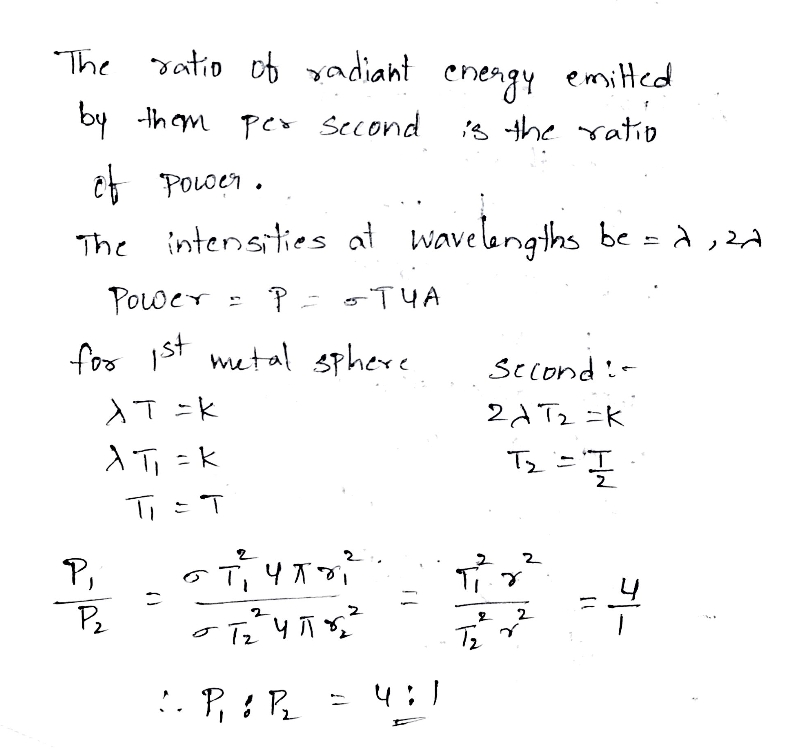 The ratio of radiant energy emitted
by them per second is the ratio
of power.
The intensities at wavelengths be = λ, 2λ
Power = P = σT4A
for 1st metal sphere
λT = k
λT₁ = k
T₁ = T
Second :-
2λT₂ = k
T₂ = T/2
P₁/P₂ = σT₁²4πr₁²/σT₂²4πr₂² = T₁²r²/T₂²r² = 4/1
∴ P₁ : P₂ = 4:1